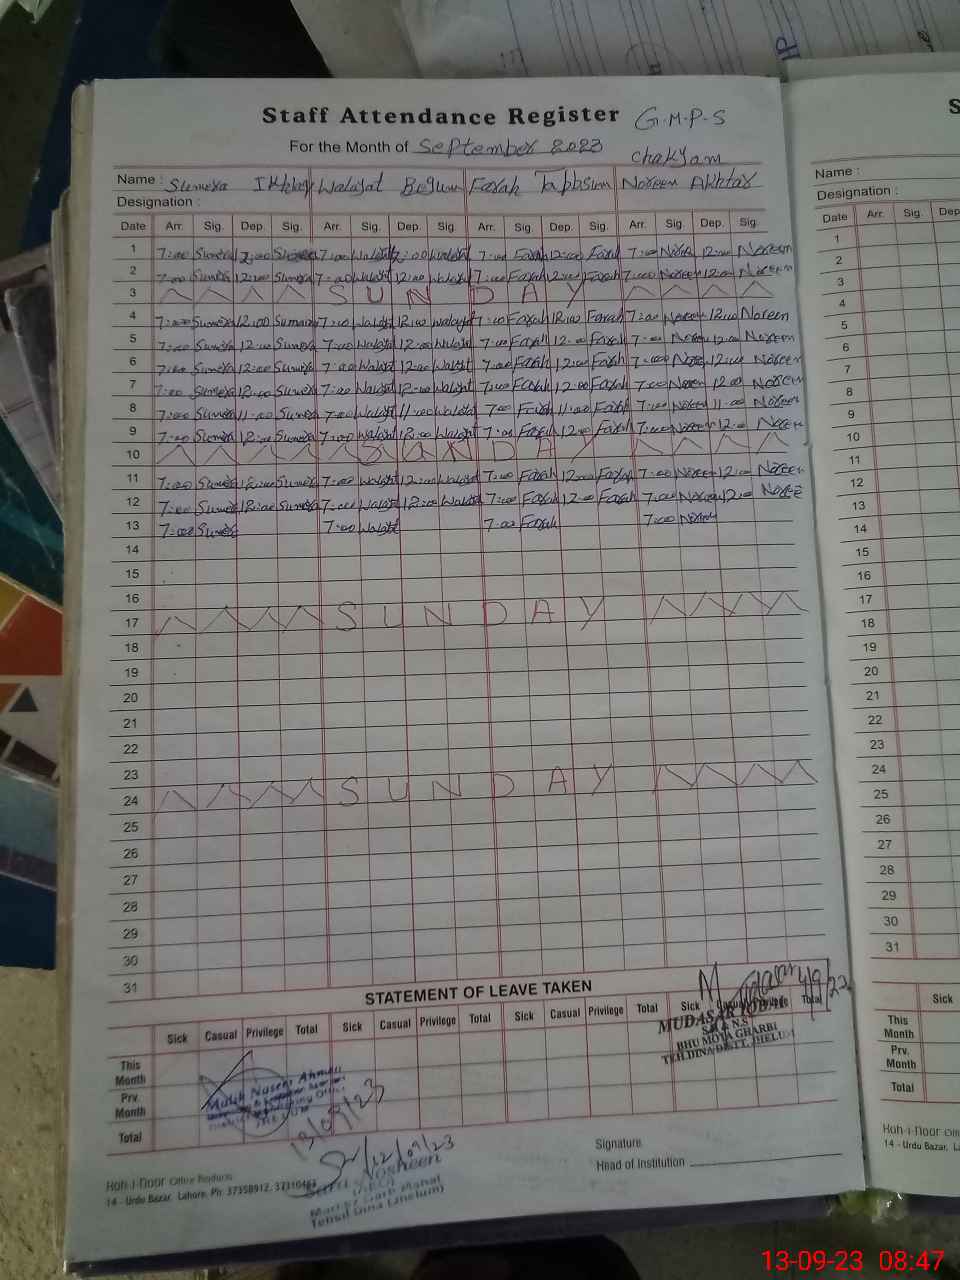 Staff Attendance Register G.M.P.S
For the Month of September 2023 Chakyam
Name : Sumera Walayat Begum Farah Tabbsum Noreen Akhtar
Designation :
Date Arr. Sig. Dep. Sig. Arr. Sig. Dep. Sig. Arr. Sig. Dep. Sig. Arr. Sig. Dep. Sig.
1 7:00 Sumera 12:00 Sumera 7:00 Walayt 12:00 Walayt 7:00 Farah 12:00 Farah 7:00 Noren 12:00 Noreen
2 7:00 Sumera 12:00 Sumera 7:00 Walayt 12:00 Walayt 7:00 Farah 12:00 Farah 7:00 Noreen 12:00 Noreen
3 SUNDAY
4 7:00 Sumera 12:00 Sumera 7:00 Walayt 12:00 Walayt 7:00 Farah 12:00 Farah 7:00 Noreen 12:00 Noreen
5 7:00 Sumera 12:00 Sumera 7:00 Walayt 12:00 Walayt 7:00 Farah 12:00 Farah 7:00 Noren 12:00 Noreen
6 7:00 Sumera 12:00 Sumera 7:00 Walayt 12:00 Walayt 7:00 Farah 12:00 Farah 7:00 Noren 12:00 Noreen
7 7:00 Sumera 12:00 Sumera 7:00 Walayt 12:00 Walayt 7:00 Farah 12:00 Farah 7:00 Noren 12:00 Noreen
8 7:00 Sumera 11:00 Sumera 7:00 Walayt 11:00 Walayt 7:00 Farah 11:00 Farah 7:00 Noreen 11:00 Noreen
9 7:00 Sumera 12:00 Sumera 7:00 Walayt 12:00 Walayt 7:00 Farah 12:00 Farah 7:00 Noreen 12:00 Noreen
10 SUNDAY
11 7:00 Sumera 12:00 Sumera 7:00 Walayt 12:00 Walayt 7:00 Farah 12:00 Farah 7:00 Noreen 12:00 Noreen
12 7:00 Sumera 12:00 Sumera 7:00 Walayt 12:00 Walayt 7:00 Farah 12:00 Farah 7:00 Noreen 12:00
13 7:00 Sumera 7:00 Walayt 7:00 Farah 7:00
14
15
16
17 SUNDAY
18
19
20
21
22
23
24 SUNDAY
25
26
27
28
29
30
31
STATEMENT OF LEAVE TAKEN
Sick Casual Privilege Total Sick Casual Privilege Total Sick Casual Privilege Total Sick Casual Privilege Total
MUDASAR IQBAL
S.H & N.S
BHU MOTA GHARBI
TEH.DINA DISTT. JHELUM
This Month
Prv. Month
Total
13/09/23
12/09/23
Tehsil Dina (Jhelum)
Signature
Head of Institution
Koh-i-Noor Office Products
14 - Urdu Bazar, Lahore. Ph: 37358912, 37310463
S
Name :
Designation :
Date Arr. Sig. Dep
1
2
3
4
5
6
7
8
9
10
11
12
13
14
15
16
17
18
19
20
21
22
23
24
25
26
27
28
29
30
31
Sick
This Month
Prv. Month
Total
Koh-i-Noor
14 - Urdu Bazar,
13-09-23 08:47